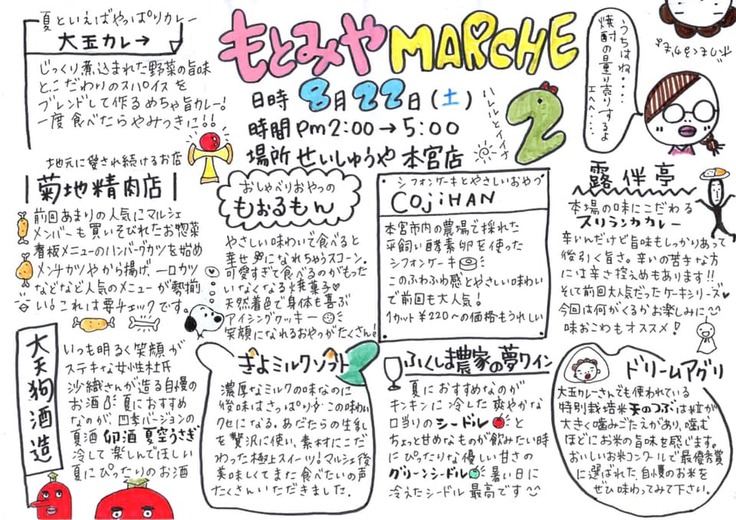 夏といえばやっぱりカレー
大玉カレー
じっくり煮込まれた野菜の旨味
とこだわりのスパイスを
ブレンドして作るめちゃ旨カレー!
一度食べたらやみつきに!!
もとみやMARCHE
2
日時 8月22日(土)
時間 Pm2:00→5:00
場所 せいしゅうや 本宮店
ハレルとイイナ
うちはね…
焼酎の量り売りするよ
エヘヘ…
地元に愛され続けるお店
菊地精肉店
前回あまりの人気にマルシェ
メンバーも買いそびれたお惣菜
看板メニューのハンバーグカツを始め
メンチカツやから揚げ、一口カツ
などなど人気のメニューが勢揃
い!これは要チェックです。
おしゃべりおやつの
もぉるもん
やさしい味わいで食べると
幸せになれちゃうスコーン。
可愛すぎて食べるのがもった
いなくなる焼菓子♡
天然着色で身体も喜ぶ
アイシングクッキー
笑顔になれるおやつがたくさん!
シフォンケーキとやさしいおやつ
COJiHAN
本宮市内の農場で採れた
平飼い酵素卵を使った
シフォンケーキ
このふわふわ感とやさしい味わい
で前回も大人気!
1カット¥220〜の価格もうれしい
露伴亭
本場の味にこだわる
スリランカカレー
辛いんだけど旨味もしっかりあって
後引く旨さ。辛いの苦手な方
には辛さ控えめもあります!!
そして前回大人気だったケーキシリーズ♥
今回は何がくるかお楽しみに
味おこわもオススメ!
大天狗酒造
いつも明るく笑顔が
ステキな女性杜氏
沙織さんが造る自慢の
お酒 夏におすすめ
なのが、四季バージョンの
夏酒 卯酒 夏空うさぎ
冷して楽しんでほしい
夏にぴったりのお酒
きよミルクソフト
濃厚なミルクの味なのに
後味はさっぱり この味わい
クセになる。あだたらの生乳
を贅沢に使い、素材にこだ
わった極上スイーツ!マルシェ後
美味しくてまた食べたいの声
たくさんいただきました。
ふくしま農家の夢ワイン
夏におすすめなのが
キンキンに冷した爽やかな
口当りのシードルと
ちょっと甘めなものが飲みたい時
にぴったりな優しい甘さの
グリーンシードル 暑い日に
冷えたシードル最高です
ドリームアグリ
大玉カレーさんでも使われている
特別栽培米天のつぶは粒が
大きく噛みごたえがあり、噛む
ほどにお米の旨味を感じます。
おいしいお米コンクールで最優秀賞
に選ばれた、自慢のお米を
ぜひ味わってみて下さい。